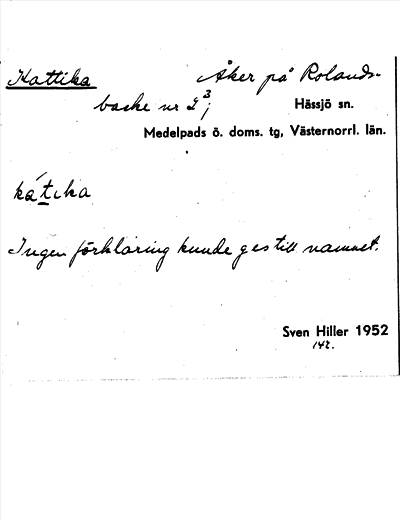 Kattika Åker på Rolands-
backe nr 2³; Hässjö sn.
Medelpads ö. doms. tg, Västernorrl. län.
kát̲ıka
Ingen förklaring kunde ges till namnet.
Sven Hiller 1952
142.